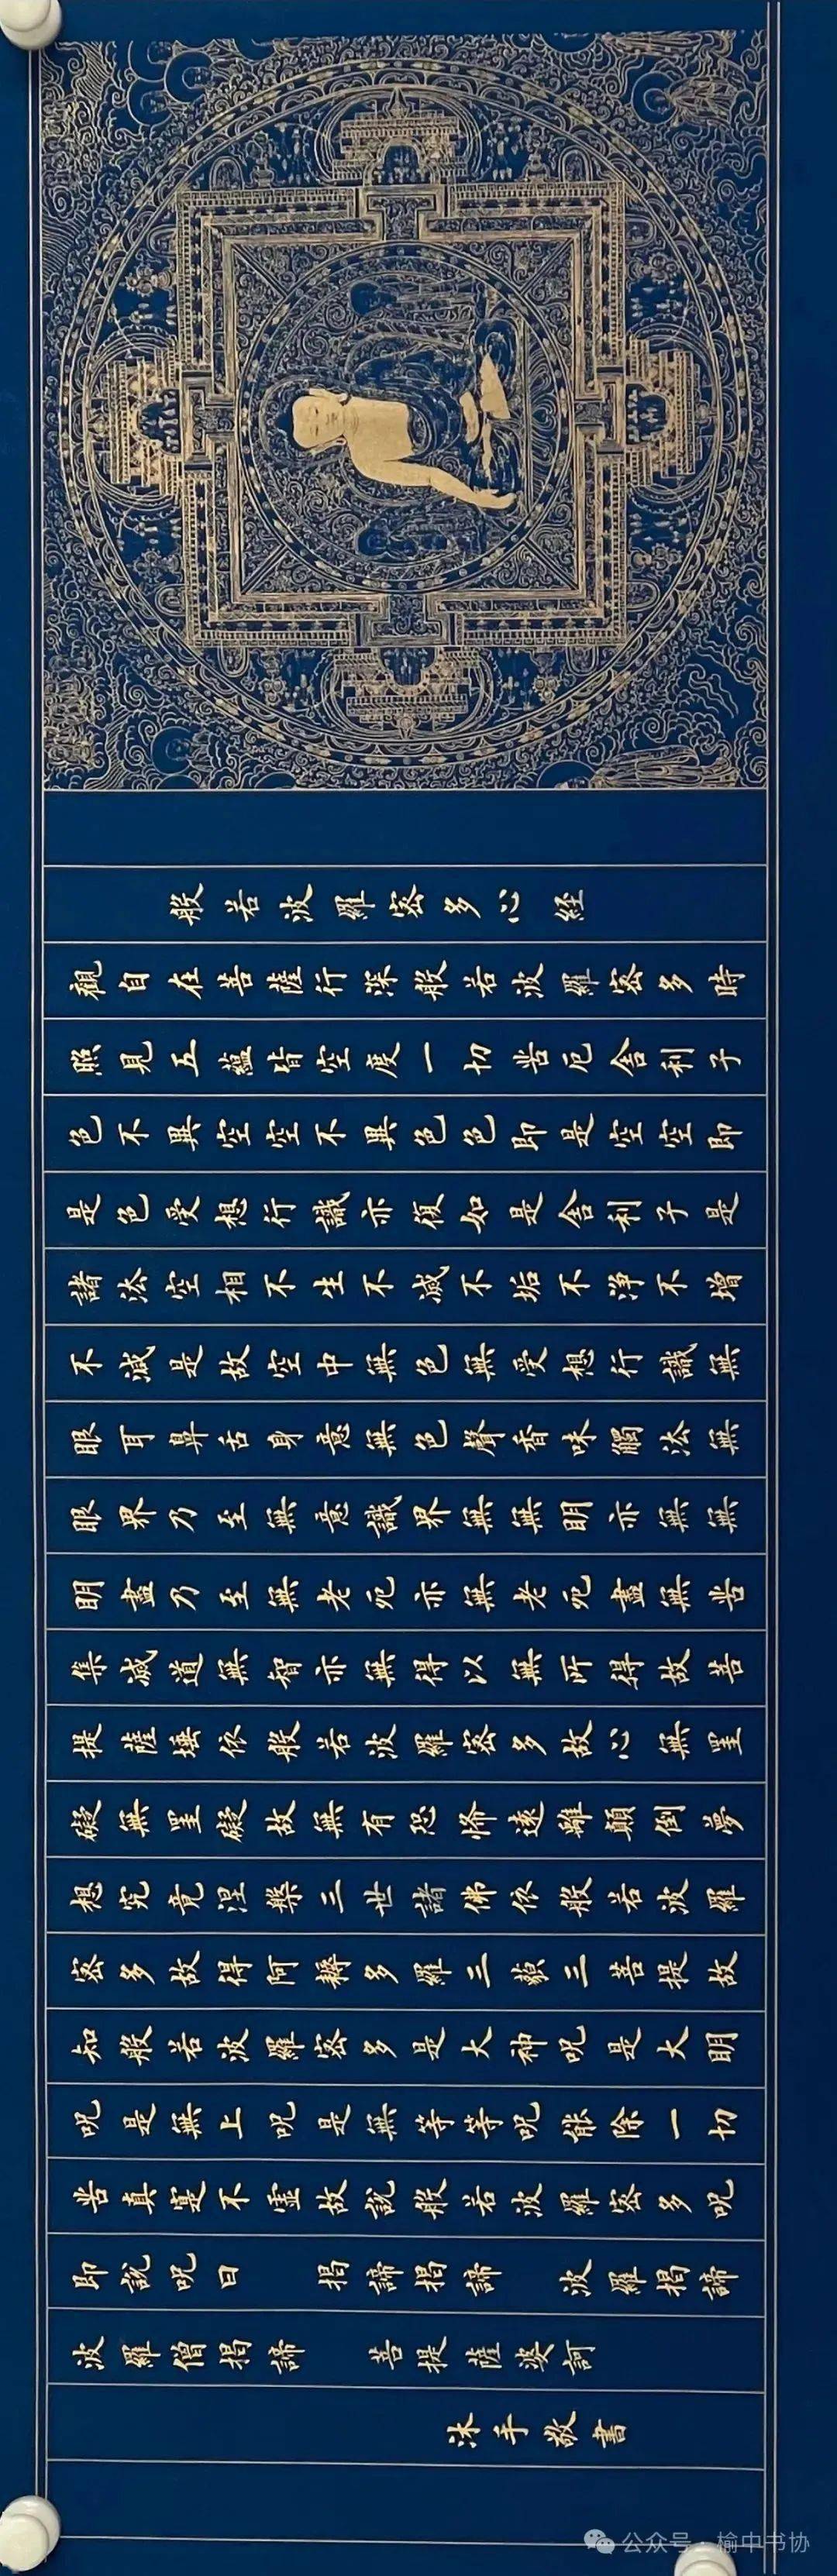 般若波羅密多心経
觀自在菩薩行深般若波羅密多時
照見五蘊皆空度一切苦厄舍利子
色不異空空不異色色即是空空即
是色受想行識亦復如是舍利子是
諸法空相不生不滅不垢不淨不增
不減是故空中無色無受想行識無
眼耳鼻舌身意無色聲香味觸法無
眼界乃至無意識界無無明亦無無
明盡乃至無老死亦無老死盡無苦
集滅道無智亦無得以無所得故菩
提薩埵依般若波羅密多故心無罣
礙無罣礙故無有恐怖遠離顛倒夢
想究竟涅槃三世諸佛依般若波羅
密多故得阿耨多羅三藐三菩提故
知般若波羅密多是大神呪是大明
呪是無上呪是無等等呪能除一切
苦真寔不虛故說般若波羅密多呪
即說呪曰 揭諦揭諦 波羅揭諦
波羅僧揭諦 菩提薩婆訶
沐手敬書
公众号·榆中书协